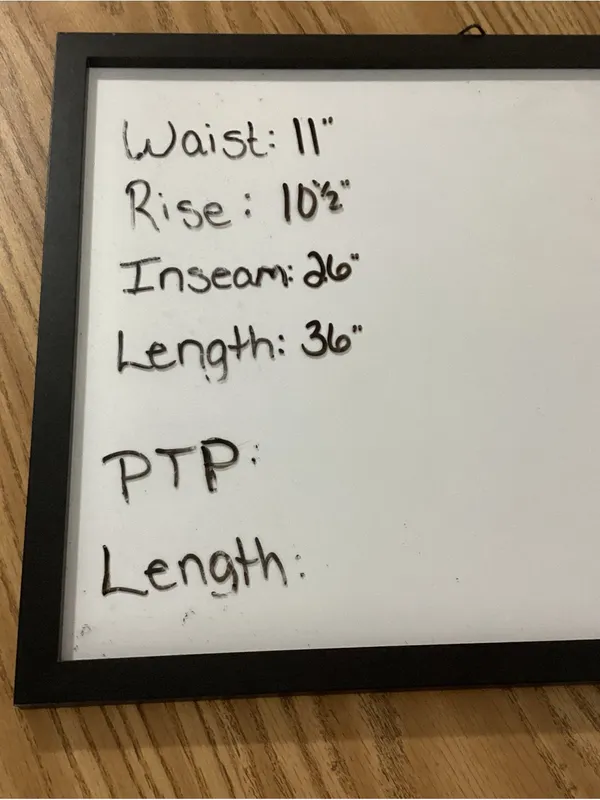 Waist: 11"
Rise: 10½"
Inseam: 26"
Length: 36"
PTP:
Length: